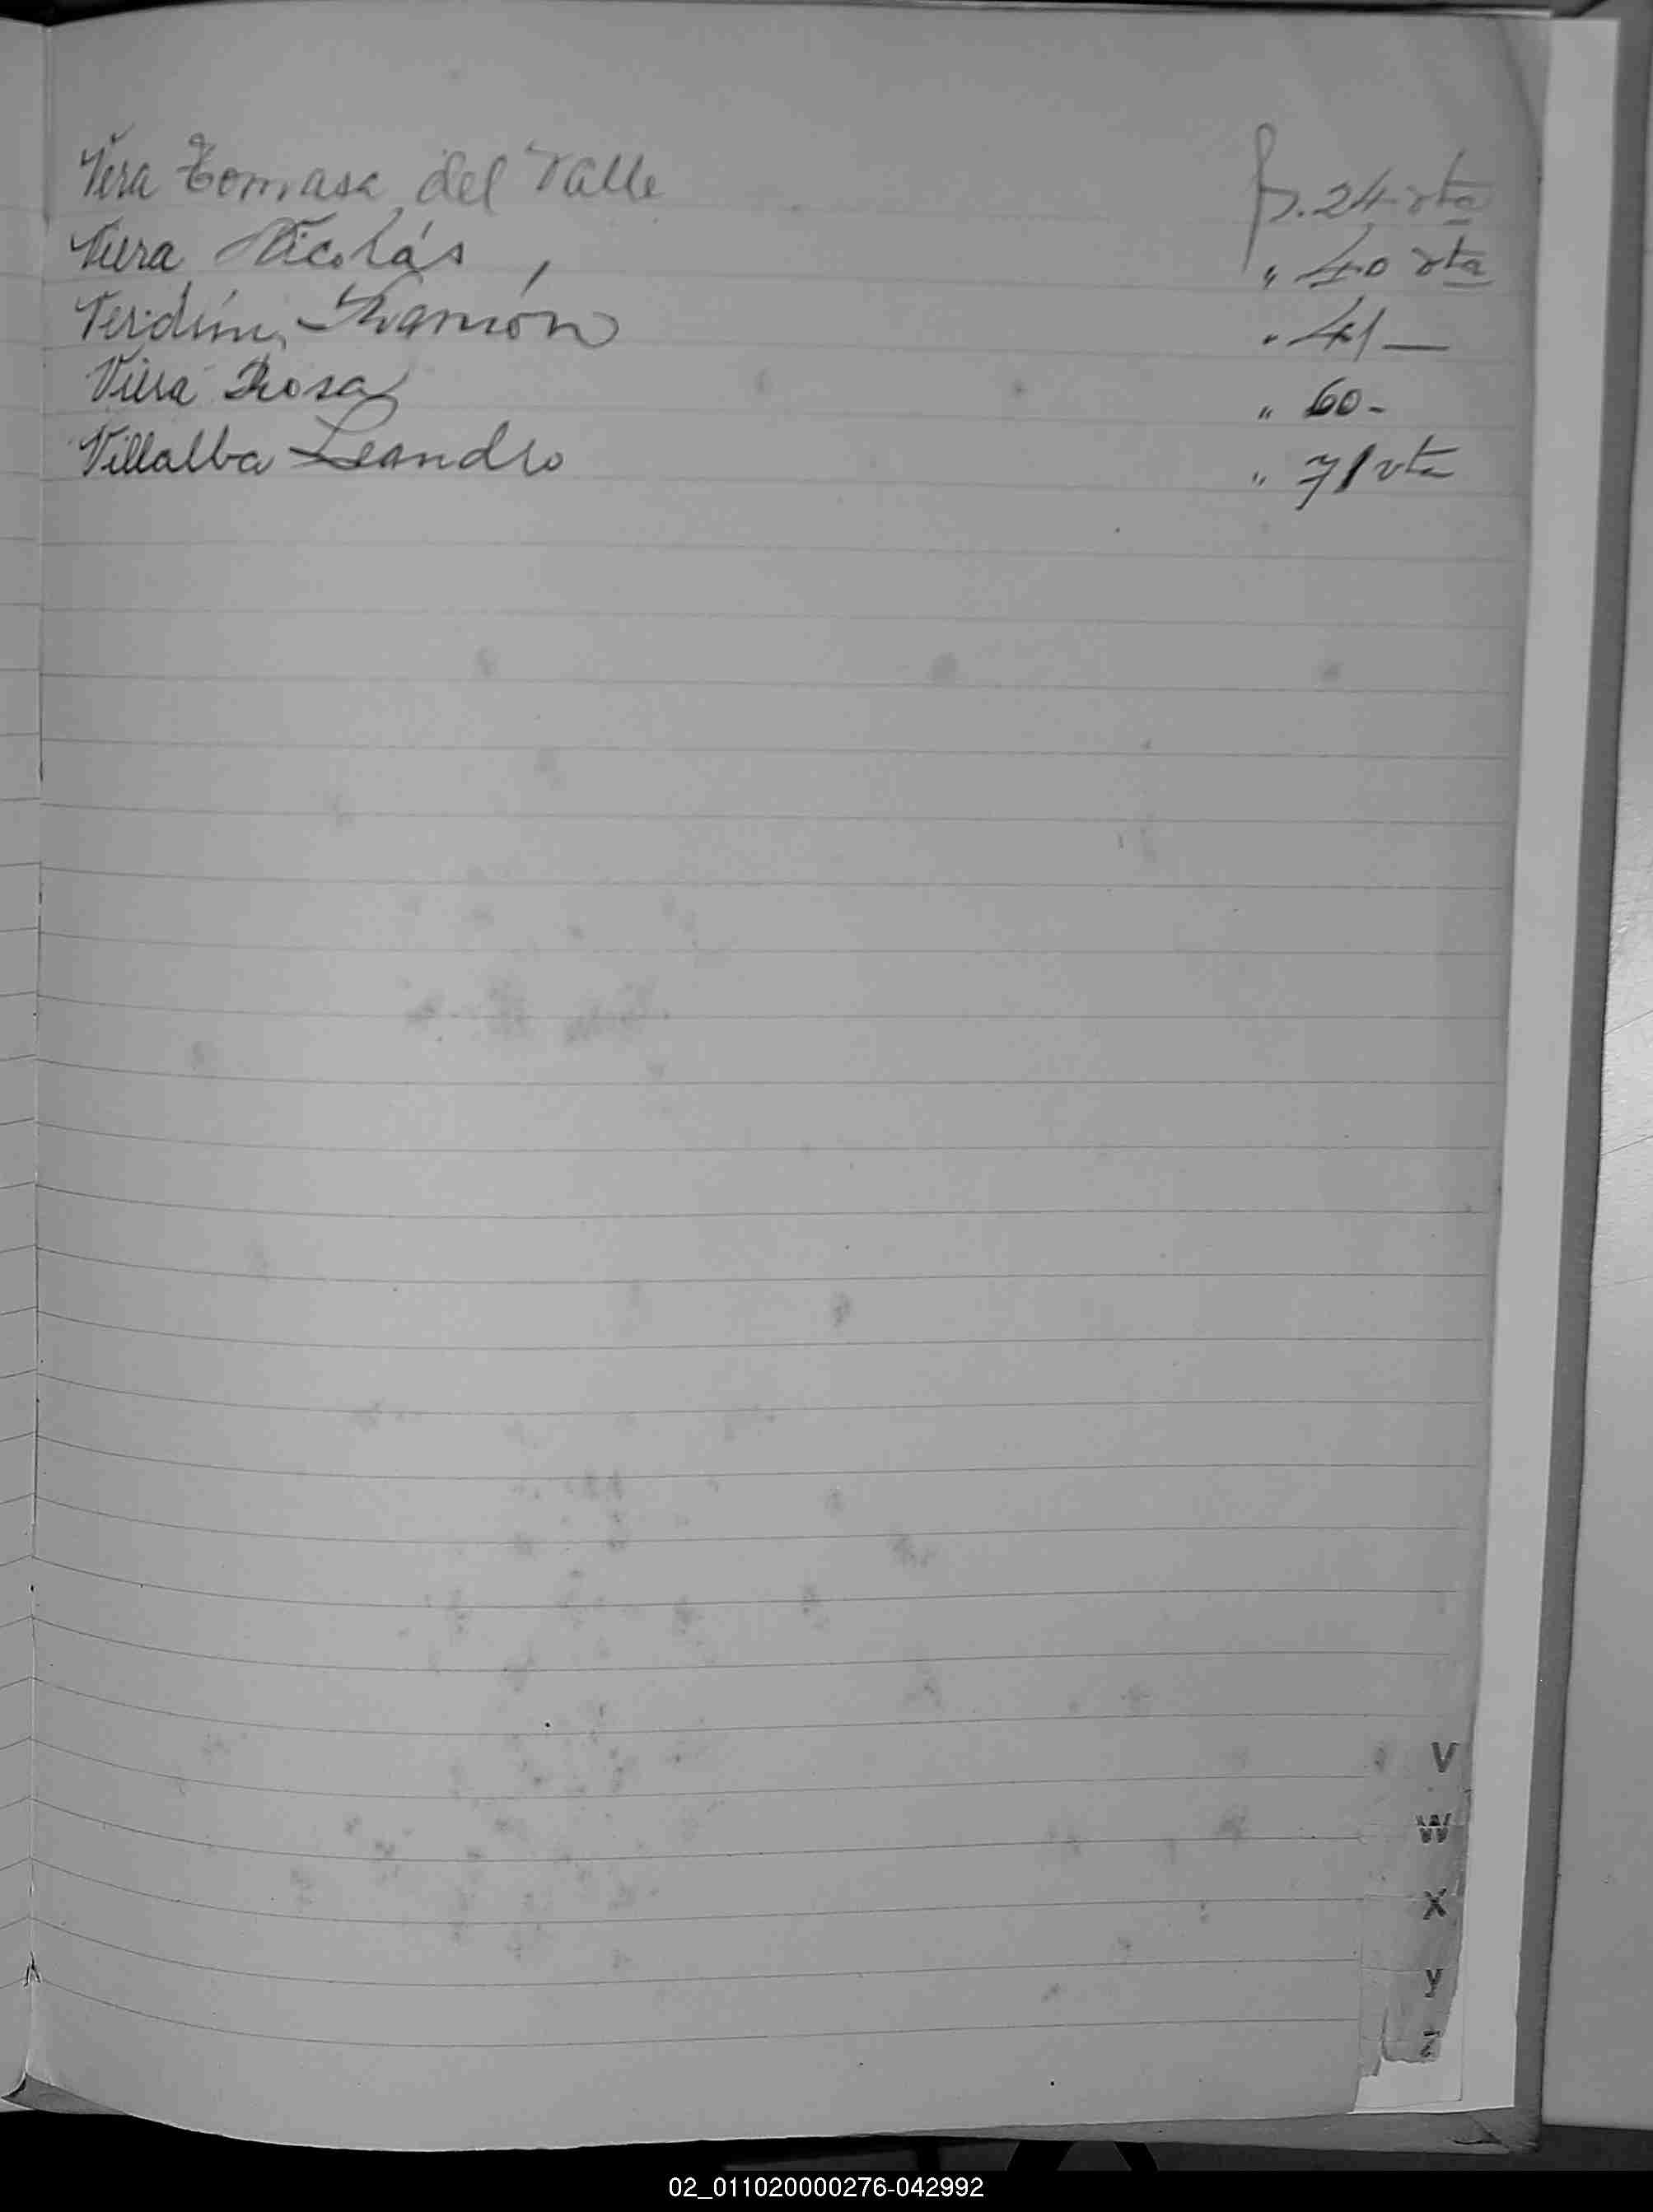 Vera Tomasa del Valle fs. 24 vta
Viera Nicolás, " 40 vta
Verdún, Ramón " 41 —
Viera Rosa " 60 -
Villalba Leandro " 71 vta
V
W
X
Y
Z
02_011020000276-042992